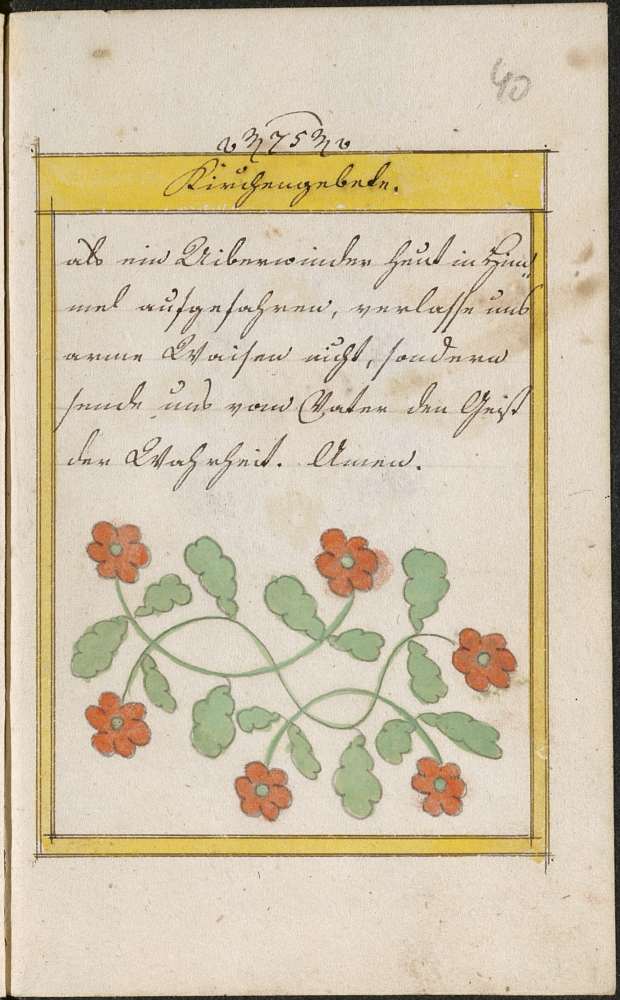 40
75
Kirchengebete.
als ein Uiberwinder heut in Him„
mel aufgefahren, verlasse uns
arme Waisen nicht, sondern
sende uns vom Vater den Geist
der Wahrheit. Amen.